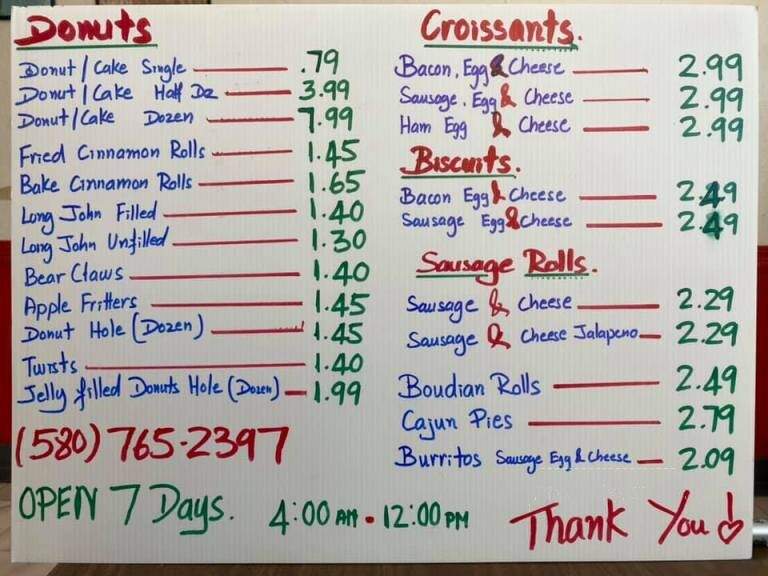 Donuts
Donut/Cake Single .79
Donut/Cake Half Dz 3.99
Donut/Cake Dozen 7.99
Fried Cinnamon Rolls 1.45
Bake Cinnamon Rolls 1.65
Long John Filled 1.40
Long John Unfilled 1.30
Bear Claws 1.40
Apple Fritters 1.45
Donut Hole (Dozen) 1.45
Twists 1.40
Jelly filled Donuts Hole (Dozen) 1.99
(580) 765-2397
OPEN 7 Days. 4:00 AM - 12:00 PM
Croissants.
Bacon, Egg & Cheese 2.99
Sausage, Egg & Cheese 2.99
Ham Egg & Cheese 2.99
Biscuits.
Bacon Egg & Cheese 2.49
Sausage Egg & Cheese 2.49
Sausage Rolls.
Sausage & Cheese 2.29
Sausage & Cheese Jalapeno 2.29
Boudian Rolls 2.49
Cajun Pies 2.79
Burritos Sausage Egg & Cheese 2.09
Thank You!